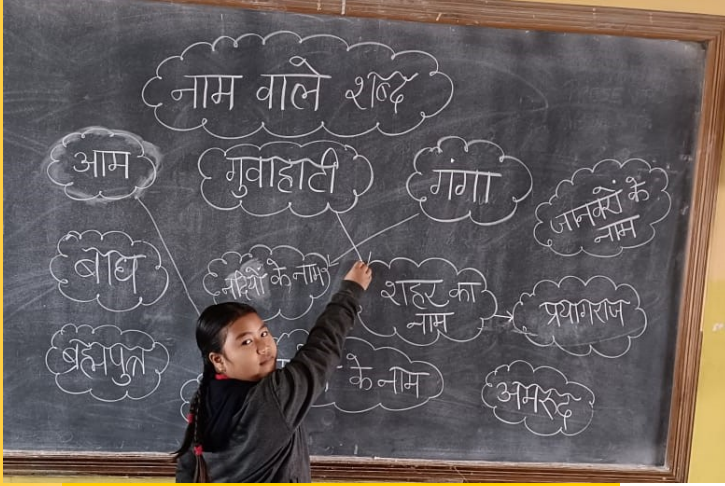 नाम वाले शब्द
आम
गुवाहाटी
गंगा
जानवरों के
नाम
बाघ
नदियों के नाम
शहर का
नाम
प्रयागराज
ब्रह्मपुत्र
के नाम
अमरुद